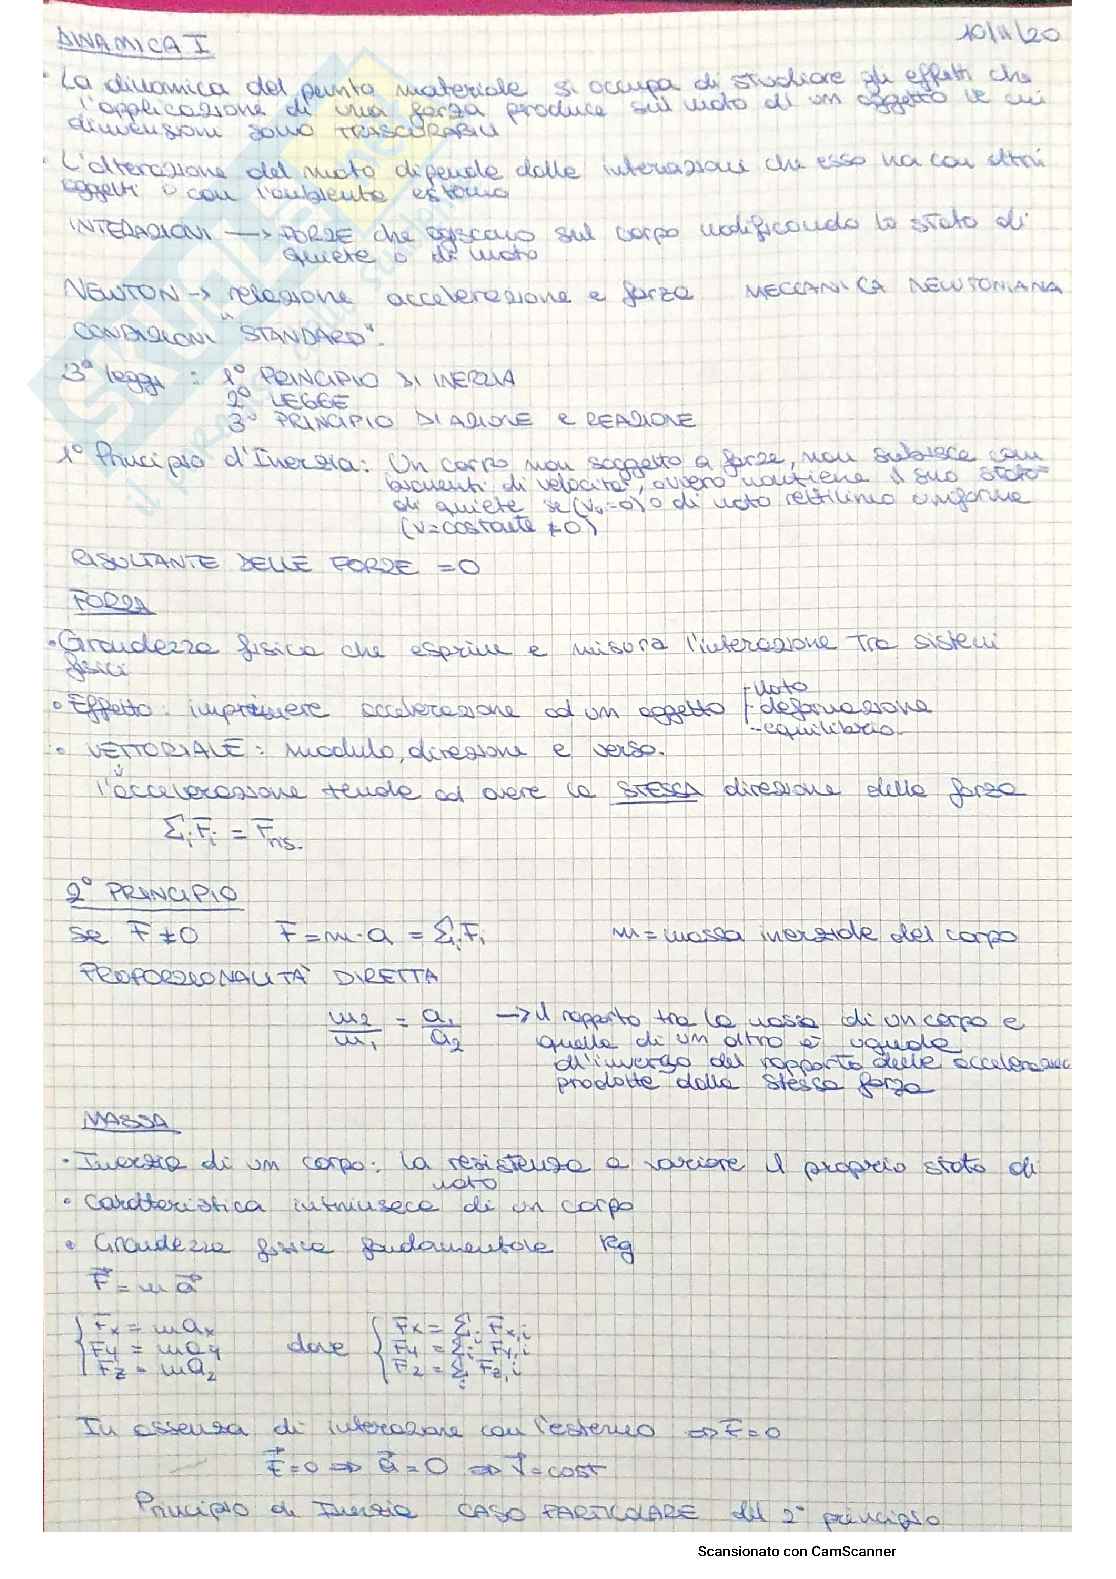 DINAMICA I 10/11/20
· La dinamica del punto materiale si occupa di studiare gli effetti che
l'applicazione di una forza produce sul moto di un oggetto le cui
dimensioni sono TRASCURABILI
· L'alterazione del moto dipende dalle interazioni che esso ha con altri
oggetti o con l'ambiente esterno
INTERAZIONI → FORZE che agiscono sul corpo modificando lo stato di
quiete o di moto
NEWTON → relazione accelerazione e forza MECCANICA NEWTONIANA
CONDIZIONI "STANDARD".
3ª leggi : 1° PRINCIPIO DI INERZIA
2° LEGGE
3° PRINCIPIO DI AZIONE e REAZIONE
1° Principio d'Inerzia: Un corpo non soggetto a forze, non subisce cam
biamenti di velocità, ovvero mantiene il suo stato
di quiete se (v₀=0) o di moto rettilineo uniforme
(v=costante ≠0)
RISULTANTE DELLE FORZE = 0
FORZA
· Grandezza fisica che esprime e misura l'interazione tra sistemi
fisici
· Effetto: imprimere accelerazione ad un oggetto - moto
- deformazione
- equilibrio.
· VETTORIALE: modulo, direzione e verso.
↓
l'accelerazione tende ad avere la STESSA direzione della forza
Σᵢ F̄ᵢ = F̄ris.
2° PRINCIPIO
se F̄ ≠ 0 F̄ = m · a = Σᵢ F̄ᵢ m = massa inerziale del corpo
PROPORZIONALITA' DIRETTA
m₂/m₁ = a₁/a₂ → il rapporto tra la massa di un corpo e
quella di un altro è uguale
all'inverso del rapporto delle accelerazioni
prodotte dalla stessa forza
MASSA
· Inerzia di un corpo: la resistenza a variare il proprio stato di
moto
· Caratteristica intrinseca di un corpo
· Grandezza fisica fondamentale kg
F⃗ = m a⃗
Fx = m ax dove Fx = Σᵢ Fx,i
Fy = m ay Fy = Σᵢ Fy,i
Fz = m az Fz = Σᵢ Fz,i
In assenza di interazione con l'esterno ⇒ F̄=0
F⃗=0 ⇒ a⃗=0 ⇒ v⃗=cost
Principio di Inerzia CASO PARTICOLARE del 2° principio
Scansionato con CamScanner